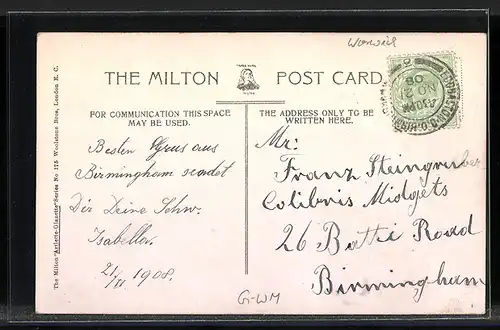 Warwick
THE MILTON POST CARD
FOR COMMUNICATION THIS SPACE
MAY BE USED.
THE ADDRESS ONLY TO BE
WRITTEN HERE.
Besten Gruss aus
Birmingham sendet
Dir Deine Schw.
Isabella.
21/II 1908.
Mr:
Franz Steingruber
Colibris Midgets
26 Battie Road
Birmingham
G-WM
The Milton "Artlette-Glazette" Series No. 115 Woolstone Bros, London E. C.
NO 2
08